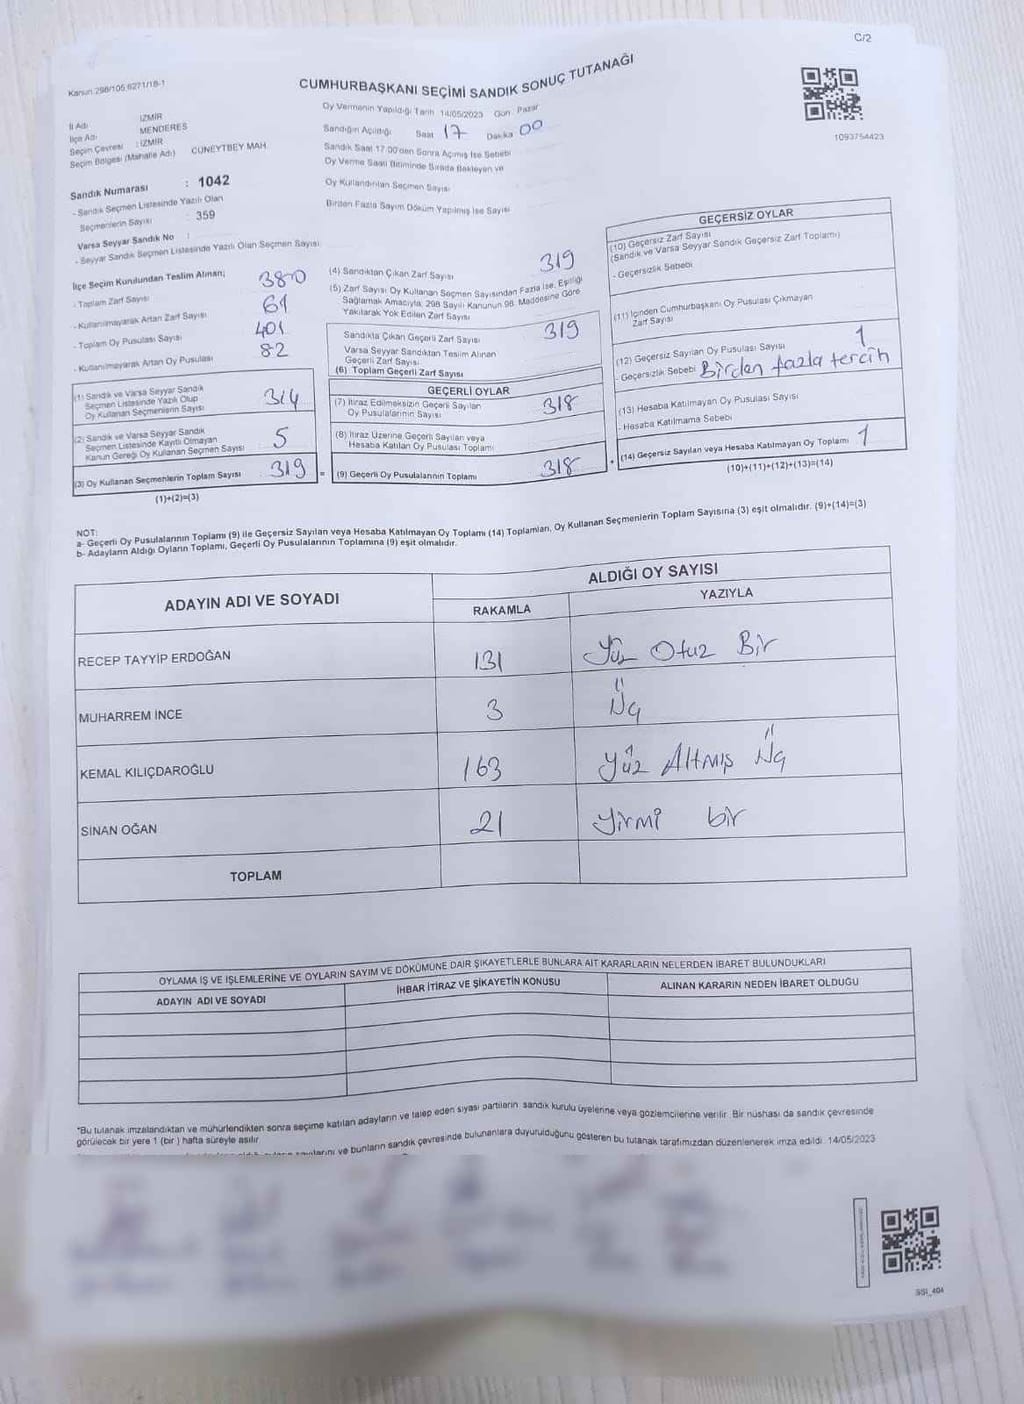 C/2
Kanun 298/105,6271/18-1
CUMHURBAŞKANI SEÇİMİ SANDIK SONUÇ TUTANAĞI
1093754423
İl Adı İZMİR
İlçe Adı MENDERES
Seçim Çevresi : İZMİR
Seçim Bölgesi (Mahalle Adı) CÜNEYTBEY MAH.
Sandık Numarası : 1042
- Sandık Seçmen Listesinde Yazılı Olan
Seçmenlerin Sayısı 359
Varsa Seyyar Sandık No :
- Seyyar Sandık Seçmen Listesinde Yazılı Olan Seçmen Sayısı
Oy Vermenin Yapıldığı Tarih 14/05/2023 Gün Pazar
Sandığın Açıldığı Saat 17 Dakika 00
Sandık Saat 17.00'den Sonra Açmış İse Sebebi
Oy Verme Saati Bitiminde Sırada Bekleyen ve
Oy Kullandırılan Seçmen Sayısı
Birden Fazla Sayım Döküm Yapılmış İse Sayısı
İlçe Seçim Kurulundan Teslim Alınan;
- Toplam Zarf Sayısı 380
- Kullanılmayarak Artan Zarf Sayısı 61
- Toplam Oy Pusulası Sayısı 401
- Kullanılmayarak Artan Oy Pusulası 82
(1) Sandık ve Varsa Seyyar Sandık
Seçmen Listesinde Yazılı Olup
Oy Kullanan Seçmenlerin Sayısı 314
(2) Sandık ve Varsa Seyyar Sandık
Seçmen Listesinde Kayıtlı Olmayan
Kanun Gereği Oy Kullanan Seçmen Sayısı 5
(3) Oy Kullanan Seçmenlerin Toplam Sayısı 319 =
(1)+(2)=(3)
(4) Sandıktan Çıkan Zarf Sayısı 319
(5) Zarf Sayısı Oy Kullanan Seçmen Sayısından Fazla İse, Eşitliği
Sağlamak Amacıyla, 298 Sayılı Kanunun 98. Maddesine Göre
Yakılarak Yok Edilen Zarf Sayısı
Sandıkta Çıkan Geçerli Zarf Sayısı 319
Varsa Seyyar Sandıktan Teslim Alınan
Geçerli Zarf Sayısı
(6) Toplam Geçerli Zarf Sayısı
GEÇERLİ OYLAR
(7) İtiraz Edilmeksizin Geçerli Sayılan
Oy Pusulalarının Sayısı 318
(8) İtiraz Üzerine Geçerli Sayılan veya
Hesaba Katılan Oy Pusulası Toplamı
(9) Geçerli Oy Pusulalarının Toplamı 318 +
GEÇERSİZ OYLAR
(10) Geçersiz Zarf Sayısı
(Sandık ve Varsa Seyyar Sandık Geçersiz Zarf Toplamı)
- Geçersizlik Sebebi
(11) İçinden Cumhurbaşkanı Oy Pusulası Çıkmayan
Zarf Sayısı
(12) Geçersiz Sayılan Oy Pusulası Sayısı 1
- Geçersizlik Sebebi Birden fazla tercih
(13) Hesaba Katılmayan Oy Pusulası Sayısı
- Hesaba Katılmama Sebebi
(14) Geçersiz Sayılan veya Hesaba Katılmayan Oy Toplamı 1
(10)+(11)+(12)+(13)=(14)
NOT:
a- Geçerli Oy Pusulalarının Toplamı (9) ile Geçersiz Sayılan veya Hesaba Katılmayan Oy Toplamı (14) Toplamları, Oy Kullanan Seçmenlerin Toplam Sayısına (3) eşit olmalıdır. (9)+(14)=(3)
b- Adayların Aldığı Oyların Toplamı, Geçerli Oy Pusulalarının Toplamına (9) eşit olmalıdır.
ADAYIN ADI VE SOYADI
ALDIĞI OY SAYISI
RAKAMLA YAZIYLA
RECEP TAYYİP ERDOĞAN 131 Yüz Otuz Bir
MUHARREM İNCE 3 Üç
KEMAL KILIÇDAROĞLU 163 Yüz Altmış Üç
SİNAN OĞAN 21 Yirmi bir
TOPLAM
OYLAMA İŞ VE İŞLEMLERİNE VE OYLARIN SAYIM VE DÖKÜMÜNE DAİR ŞİKAYETLERLE BUNLARA AİT KARARLARIN NELERDEN İBARET BULUNDUKLARI
ADAYIN ADI VE SOYADI İHBAR İTİRAZ VE ŞİKAYETİN KONUSU ALINAN KARARIN NEDEN İBARET OLDUĞU
*Bu tutanak imzalandıktan ve mühürlendikten sonra seçime katılan adayların ve talep eden siyasi partilerin sandık kurulu üyelerine veya gözlemcilerine verilir. Bir nüshası da sandık çevresinde
görülecek bir yere 1 (bir) hafta süreyle asılır.
sayılarını ve bunların sandık çevresinde bulunanlara duyurulduğunu gösteren bu tutanak tarafımızdan düzenlenerek imza edildi. 14/05/2023
SSI_404